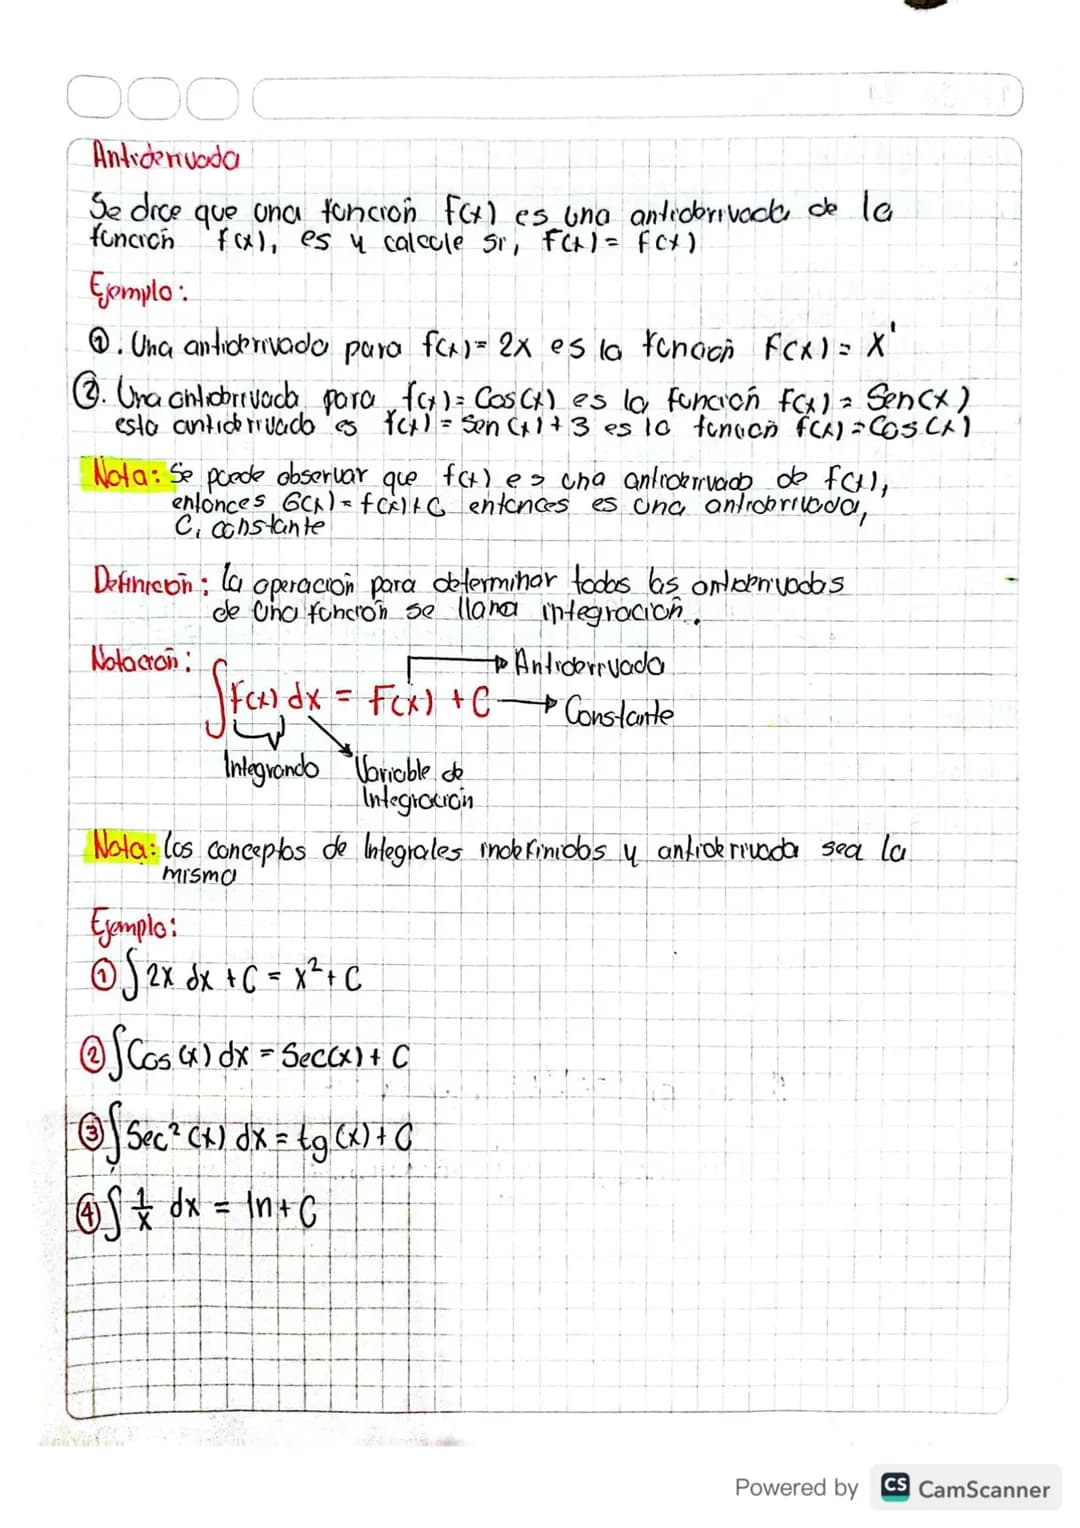 Antiderivada
Se dice que una función F(x) es una antiderivada de la
función f(x), es y calcule si, F(x) = f(x)
Ejemplo:
①. Una antiderivada para f(x) = 2x es la función F(x) = x'
②. Una antiderivada para f(x) = Cos(x) es la función f(x) = Sen(x)
esta antiderivada es f(x) = Sen(x) + 3 es la función f(x) = Cos(x)
Nota: Se puede observar que f(x) es una antiderivada de f(x),
entonces G(x) = f(x) + C entonces es una antiderivada,
C, constante
Definición: la operación para determinar todas las antiderivadas
de una función se llama integración.
Notación:
Antiderivada
∫f(x) dx = F(x) + C
Constante
Integrando
Variable de
Integración
Nota: los conceptos de Integrales indefinidas y antiderivada sea la
misma
Ejemplo:
① ∫2x dx + C = x² + C
② ∫Cos(x) dx = Sec(x) + C
③ ∫Sec²(x) dx = tg(x) + C
④ ∫1/x dx = ln + C
Powered by CS CamScanner